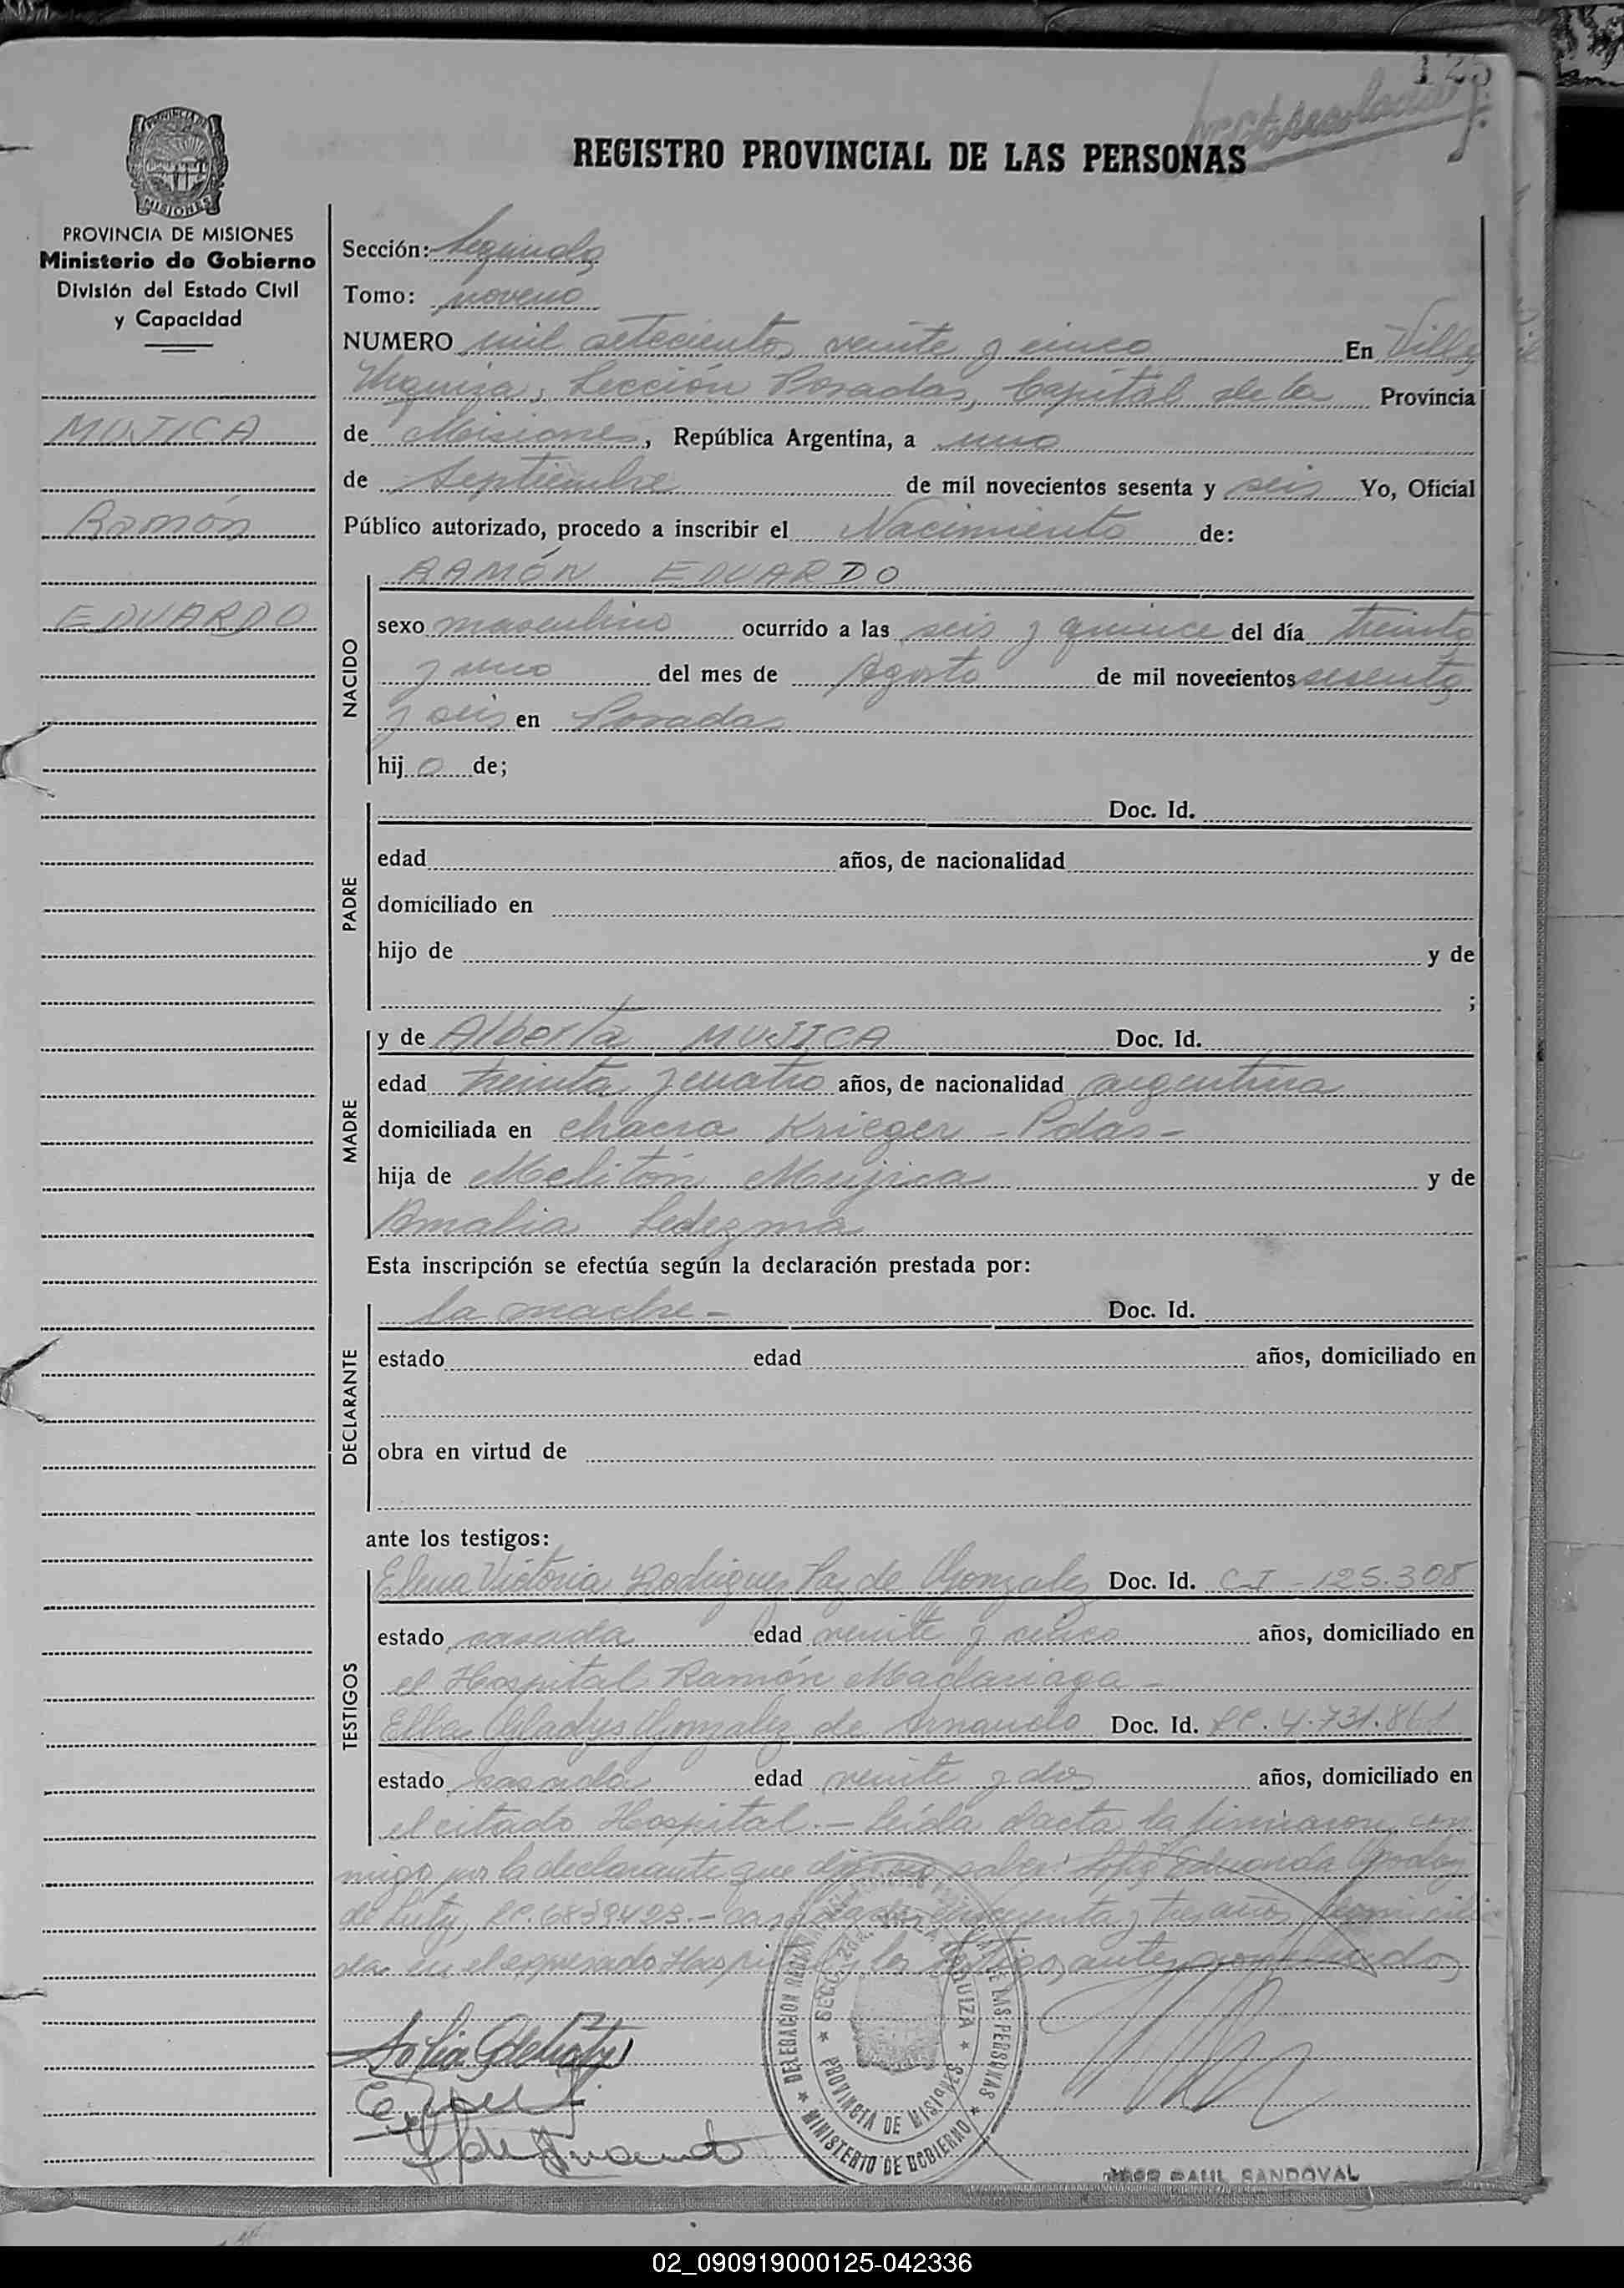 125
REGISTRO PROVINCIAL DE LAS PERSONAS
PROVINCIA DE MISIONES
Ministerio de Gobierno
División del Estado Civil
y Capacidad
MUJICA
Ramón
EDUARDO
Sección: Segunda
Tomo: noveno
NUMERO mil setecientos veinte y cinco En Villa
Urquiza, Sección Posadas, Capital de la Provincia
de Misiones, República Argentina, a uno
de Septiembre de mil novecientos sesenta y seis Yo, Oficial
Público autorizado, procedo a inscribir el Nacimiento de:
NACIDO
RAMÓN EDUARDO
sexo masculino ocurrido a las seis y quince del día treinta
y uno del mes de Agosto de mil novecientos sesenta
y seis en Posadas
hijo de;
PADRE
Doc. Id.
edad años, de nacionalidad
domiciliado en
hijo de y de
;
MADRE
y de Alberta MUJICA Doc. Id.
edad treinta y cuatro años, de nacionalidad argentina
domiciliada en chacra Krieger - Pdas -
hija de Melitón Mujica y de
Amalia Ledezma
Esta inscripción se efectúa según la declaración prestada por:
DECLARANTE
la madre - Doc. Id.
estado edad años, domiciliado en
obra en virtud de
ante los testigos:
TESTIGOS
Elena Victoria Rodriguez Paz de Gonzalez Doc. Id. C-I - 125.308
estado casada edad veinte y cinco años, domiciliado en
el Hospital Ramón Madariaga -
Elba Gladys Gonzalez de Doc. Id. LC. 4.731.861
estado casada edad veinte y dos años, domiciliado en
el citado Hospital. - Leída el acta la firmaron con
migo por la declarante que dijo no saber:
de LC. 6839423. - y tres años, domicilia
da en el expresado Hospital y los testigos antes nombrados
DELEGACION
DE LAS PERSONAS
MINISTERIO DE GOBIERNO
PROVINCIA DE MISIONES
RAUL SANDOVAL
02_090919000125-042336